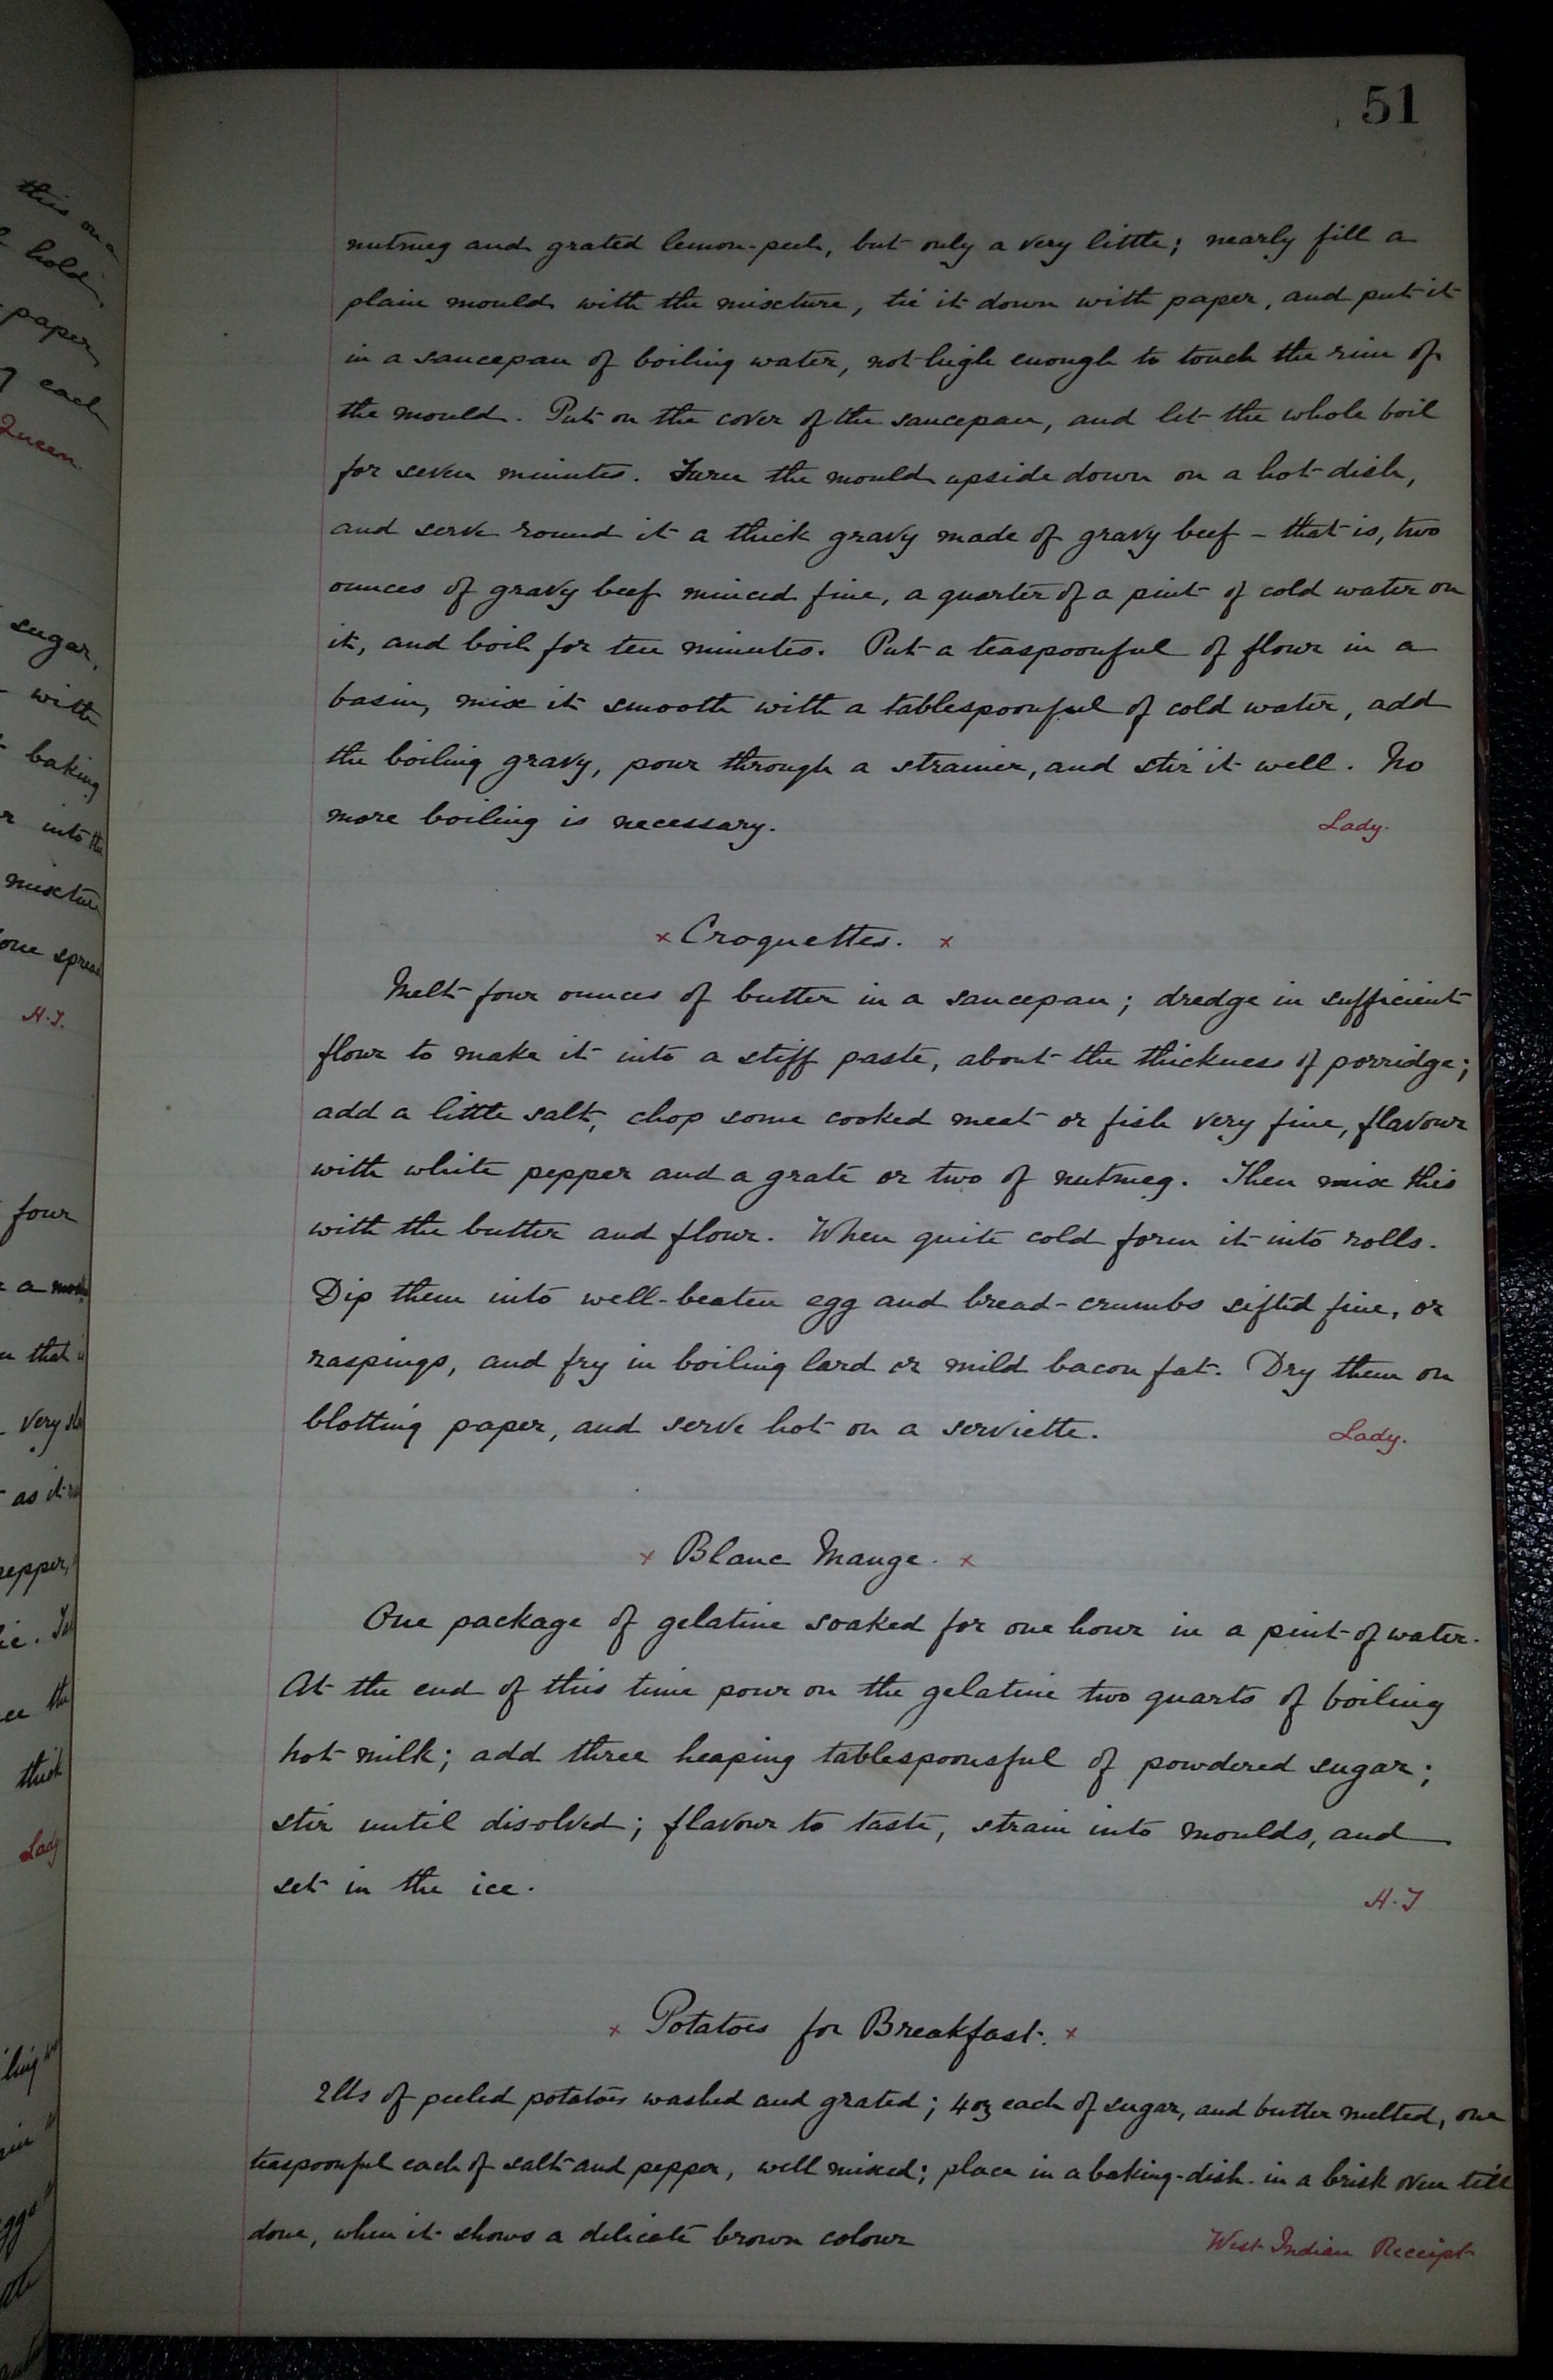 this on a
hold
paper,
each
Queen.
sugar,
with
baking
into the
mixture
one spread
H.J.
four
a
that
very
as it
pepper,
the
thick
Lady
51
nutmeg and grated lemon-peel, but only a very little; nearly fill a
plain mould with the mixture, tie it down with paper, and put it
in a saucepan of boiling water, not high enough to touch the rim of
the mould. Put on the cover of the saucepan, and let the whole boil
for seven minutes. Turn the mould upside down on a hot dish,
and serve round it a thick gravy made of gravy beef - that is, two
ounces of gravy beef minced fine, a quarter of a pint of cold water on
it, and boil for ten minutes. Put a teaspoonful of flour in a
basin, mix it smooth with a tablespoonful of cold water, add
the boiling gravy, pour through a strainer, and stir it well. No
more boiling is necessary. Lady.
x Croquettes. x
Melt four ounces of butter in a saucepan; dredge in sufficient
flour to make it into a stiff paste, about the thickness of porridge;
add a little salt, chop some cooked meat or fish very fine, flavour
with white pepper and a grate or two of nutmeg. Then mix this
with the butter and flour. When quite cold form it into rolls.
Dip them into well-beaten egg and bread-crumbs sifted fine, or
raspings, and fry in boiling lard or mild bacon fat. Dry them on
blotting paper, and serve hot on a serviette. Lady.
x Blanc Mange. x
One package of gelatine soaked for one hour in a pint of water.
At the end of this time pour on the gelatine two quarts of boiling
hot milk; add three heaping tablespoonsful of powdered sugar;
stir until disolved; flavour to taste, strain into moulds, and
set in the ice. H.J
x Potatoes for Breakfast. x
2lbs of peeled potatoes washed and grated; 4oz each of sugar, and butter melted, one
teaspoonful each of salt and pepper, well mixed; place in a baking-dish in a brisk oven till
done, when it shows a delicate brown colour West Indian Receipt